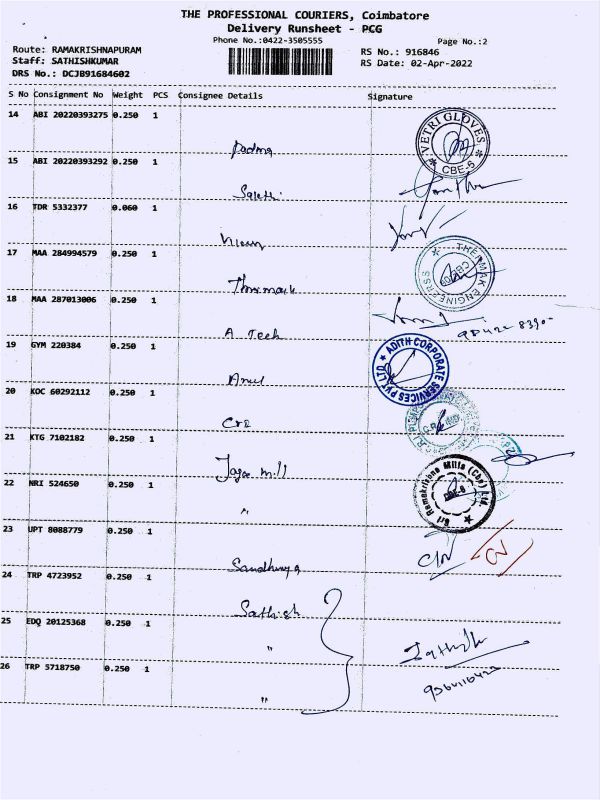 THE PROFESSIONAL COURIERS, Coimbatore
Delivery Runsheet - PCG
Phone No.:0422-3505555 Page No.:2
Route: RAMAKRISHNAPURAM RS No.: 916846
Staff: SATHISHKUMAR RS Date: 02-Apr-2022
DRS No.: DCJB91684602
S No Consignment No Weight PCS Consignee Details Signature
14 ABI 20220393275 0.250 1
Padma
VETRI GLOVES
CBE-6
15 ABI 20220393292 0.250 1
16 TDR 5332377 0.060 1
17 MAA 284994579 0.250 1
THERMAK ENGINEERSS
18 MAA 287013006 0.250 1
A Tech
19 GYM 220384 0.250 1
ADITH CORPORATE SERVICES PVT LTD
20 KOC 60292112 0.250 1
21 KTG 7102182 0.250 1
mill
22 NRI 524650 0.250 1
"
Sri Ramakrishna Mills (Cbe) Ltd.
CBE-6
23 UPT 8088779 0.250 1
Sandhunya
24 TRP 4723952 0.250 1
Sathish
25 EDQ 20125368 0.250 1
"
26 TRP 5718750 0.250 1
"